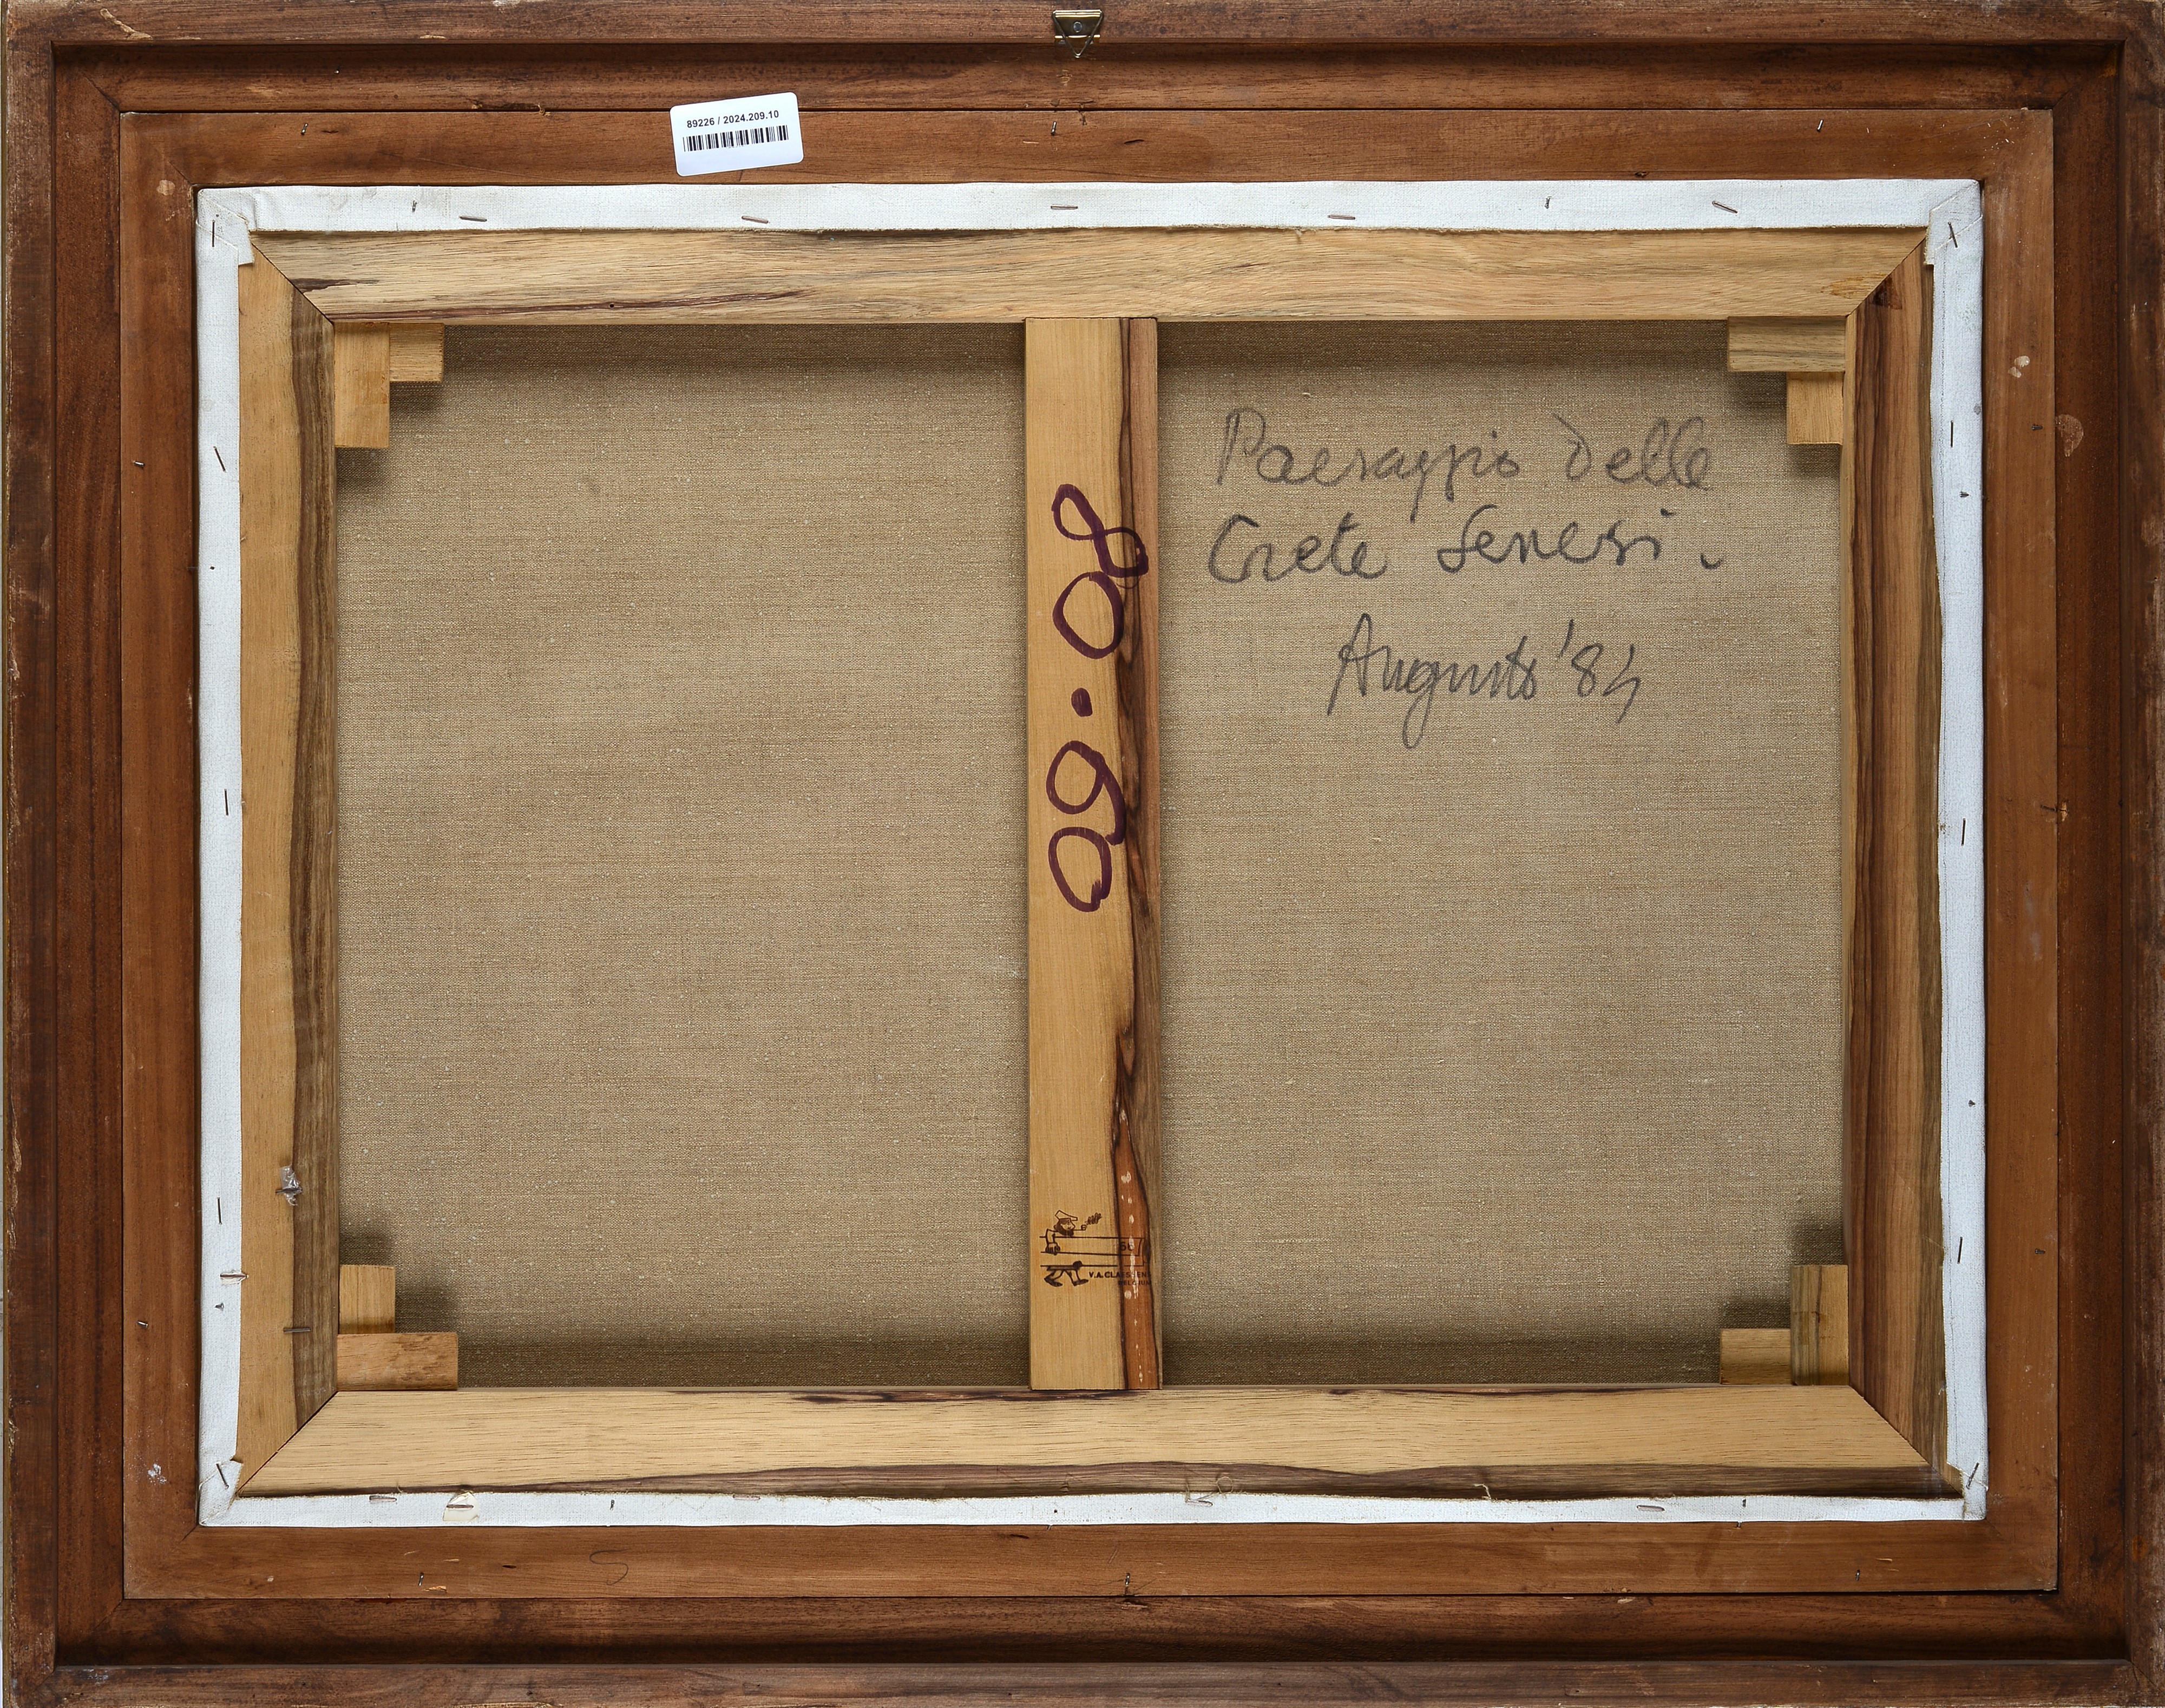 89226 / 2024.209.10
Paesaggio delle
Crete Senesi.
Augusto '84
80.60
56
V.A.CLAESSENS
BELGIUM